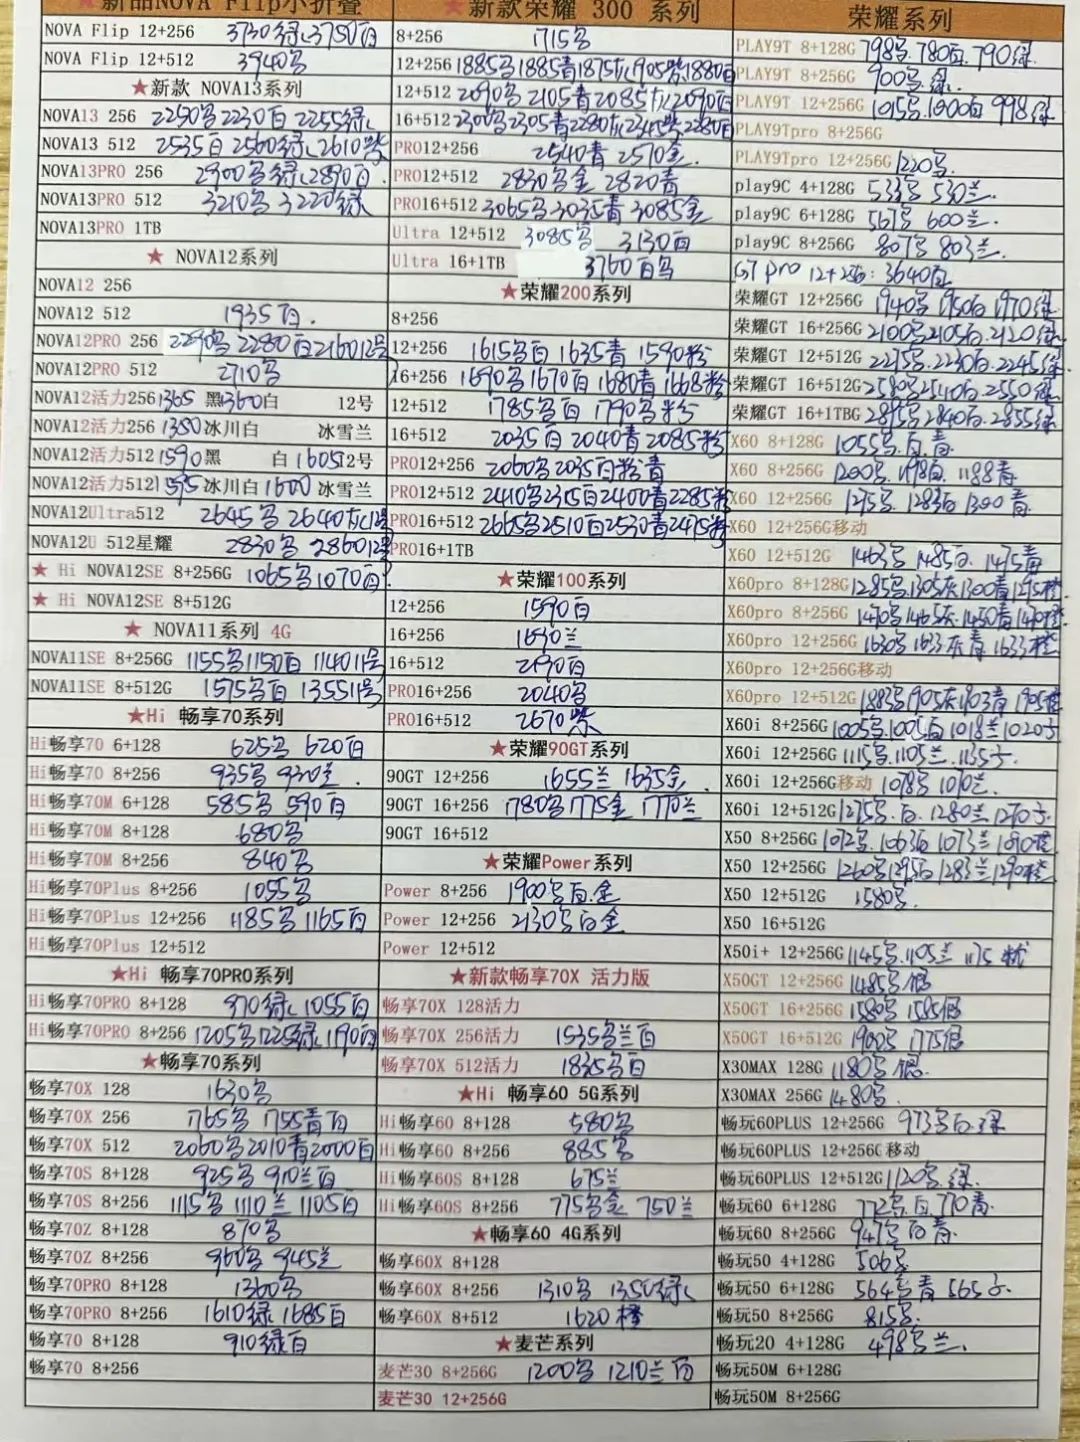 新品NOVA Flip小折叠
NOVA Flip 12+256 3730绿 3750白
NOVA Flip 12+512 3940
★新款 NOVA13系列
NOVA13 256 2250 2230白 2255绿
NOVA13 512 2535白 2560绿 2610紫
NOVA13PRO 256 2900 绿 2890白
NOVA13PRO 512 3210 3220绿
NOVA13PRO 1TB
★ NOVA12系列
NOVA12 256
NOVA12 512 1935白
NOVA12PRO 256 2290 2280白 2160 12号
NOVA12PRO 512 2710
NOVA12活力256 1365 黑 1360白 12号
NOVA12活力256 1350 冰川白 冰雪兰
NOVA12活力512 1590 黑 白 1605 12号
NOVA12活力512 1575 冰川白 1600 冰雪兰
NOVA12Ultra512 2645 2640
NOVA12U 512星耀 2830 2860 12号
★ Hi NOVA12SE 8+256G 1065 1070白
★ Hi NOVA12SE 8+512G
★ NOVA11系列 4G
NOVA11SE 8+256G 1155 1150白 1140 11号
NOVA11SE 8+512G 1575 白 1355 11号
★Hi 畅享70系列
Hi畅享70 6+128 625 620白
Hi畅享70 8+256 935 930兰
Hi畅享70M 6+128 585 590白
Hi畅享70M 8+128 680
Hi畅享70M 8+256 840
Hi畅享70Plus 8+256 1055
Hi畅享70Plus 12+256 1185 1165白
Hi畅享70Plus 12+512
★Hi 畅享70PRO系列
Hi畅享70PRO 8+128 970绿 1055白
Hi畅享70PRO 8+256 1205 1225绿 1190白
★畅享70系列
畅享70X 128 1630
畅享70X 256 1765 1755青白
畅享70X 512 2060 2010青 2000白
畅享70S 8+128 925 910兰白
畅享70S 8+256 1115 1110兰 1105白
畅享70Z 8+128 870
畅享70Z 8+256 960 945兰
畅享70PRO 8+128 1360
畅享70PRO 8+256 1610绿 1685白
畅享70 8+128 910绿白
畅享70 8+256
★新款荣耀 300 系列
8+256 1715
12+256 1885 1885青 1875灰 1905紫 1880白
12+512 2090 2105青 2085灰 2090白
16+512 2300 2305青 2280灰 2345紫 2280白
PRO12+256 2540青 2570金
PRO12+512 2830 金 2820青
PRO16+512 3065 3035青 3085金
Ultra 12+512 3085 3130白
Ultra 16+1TB 3760白
★荣耀200系列
8+256
12+256 1615 白 1635青 1590粉
16+256 1690 1670白 1680青 1668粉
12+512 1785 白 1790 粉
16+512 2035白 2040青 2085粉
PRO12+256 2060 2035白粉青
PRO12+512 2410 2375白 2400青 2285粉
PRO16+512 2665 2510白 2530青 2475粉
PRO16+1TB
★荣耀100系列
12+256 1590白
16+256 1690兰
16+512 2190白
PRO16+256 2040
PRO16+512 2670紫
★荣耀90GT系列
90GT 12+256 1655兰 1635金
90GT 16+256 1780 1775金 1770兰
90GT 16+512
★荣耀Power系列
Power 8+256 1900 白金
Power 12+256 2130 白金
Power 12+512
★新款畅享70X 活力版
畅享70X 128活力
畅享70X 256活力 1535 兰白
畅享70X 512活力 1835 白
★Hi 畅享60 5G系列
Hi畅享60 8+128 580
Hi畅享60 8+256 885
Hi畅享60S 8+128 675兰
Hi畅享60S 8+256 775 金 750兰
★畅享60 4G系列
畅享60X 8+128
畅享60X 8+256 1310 1350绿
畅享60X 8+512 1620橙
★麦芒系列
麦芒30 8+256G 1200 1210兰白
麦芒30 12+256G
荣耀系列
PLAY9T 8+128G 798 780白 790绿
PLAY9T 8+256G 900 绿
PLAY9T 12+256G 1015 1000白 998绿
PLAY9Tpro 8+256G
PLAY9Tpro 12+256G 1220
play9C 4+128G 533 530兰
play9C 6+128G 567 600兰
play9C 8+256G 807 803兰
GT pro 12+256: 3640白
荣耀GT 12+256G 1940 1950白 1970绿
荣耀GT 16+256G 2100 2105白 2120绿
荣耀GT 12+512G 2275 2230白 2245绿
荣耀GT 16+512G 2580 2540白 2550绿
荣耀GT 16+1TBG 2895 2840白 2855绿
X60 8+128G 1055 白青
X60 8+256G 1200 1198白 1188青
X60 12+256G 1295 1283白 1300青
X60 12+256G移动
X60 12+512G 1463 1485白 1475青
X60pro 8+128G 1285 1305灰 1300青 1295橙
X60pro 8+256G 1470 1465灰 1450青 1470橙
X60pro 12+256G 1630 1633灰青 1633橙
X60pro 12+256G移动
X60pro 12+512G 1883 1905灰 1903青 1905橙
X60i 8+256G 1005 1005白 1018兰 1020
X60i 12+256G 1115 1105兰 1135
X60i 12+256G移动 1078 1070兰
X60i 12+512G 1275 白 1280兰 1270
X50 8+256G 1072 1063白 1073兰 1090橙
X50 12+256G 1260 1295白 1283兰 1290橙
X50 12+512G 1580
X50 16+512G
X50i+ 12+256G 1145 1105兰 1175粉
X50GT 12+256G 1485 银
X50GT 16+256G 1580 1585银
X50GT 16+512G 1900 1775银
X30MAX 128G 1180 银
X30MAX 256G 1480
畅玩60PLUS 12+256G 973 白绿
畅玩60PLUS 12+256G移动
畅玩60PLUS 12+512G 1120 绿
畅玩60 6+128G 772 白 770青
畅玩60 8+256G 947 白青
畅玩50 4+128G 506
畅玩50 6+128G 564 青 565
畅玩50 8+256G 815
畅玩20 4+128G 498 兰
畅玩50M 6+128G
畅玩50M 8+256G